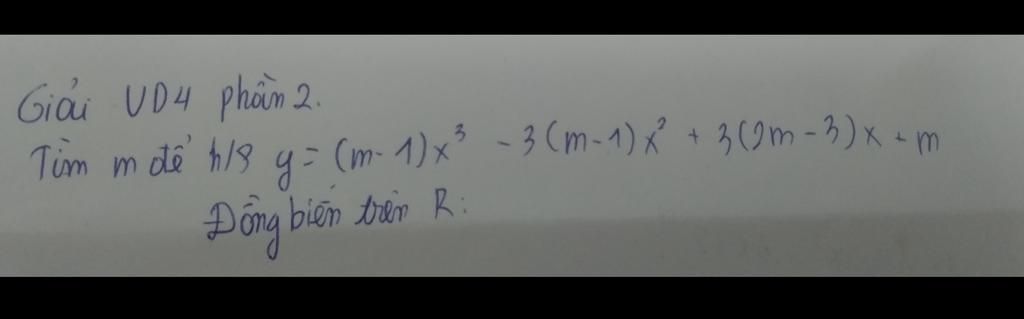 Giải VD4 phần 2.
Tìm m để h/s y = (m-1)x³ - 3(m-1)x² + 3(2m-3)x + m
Đồng biến trên R: